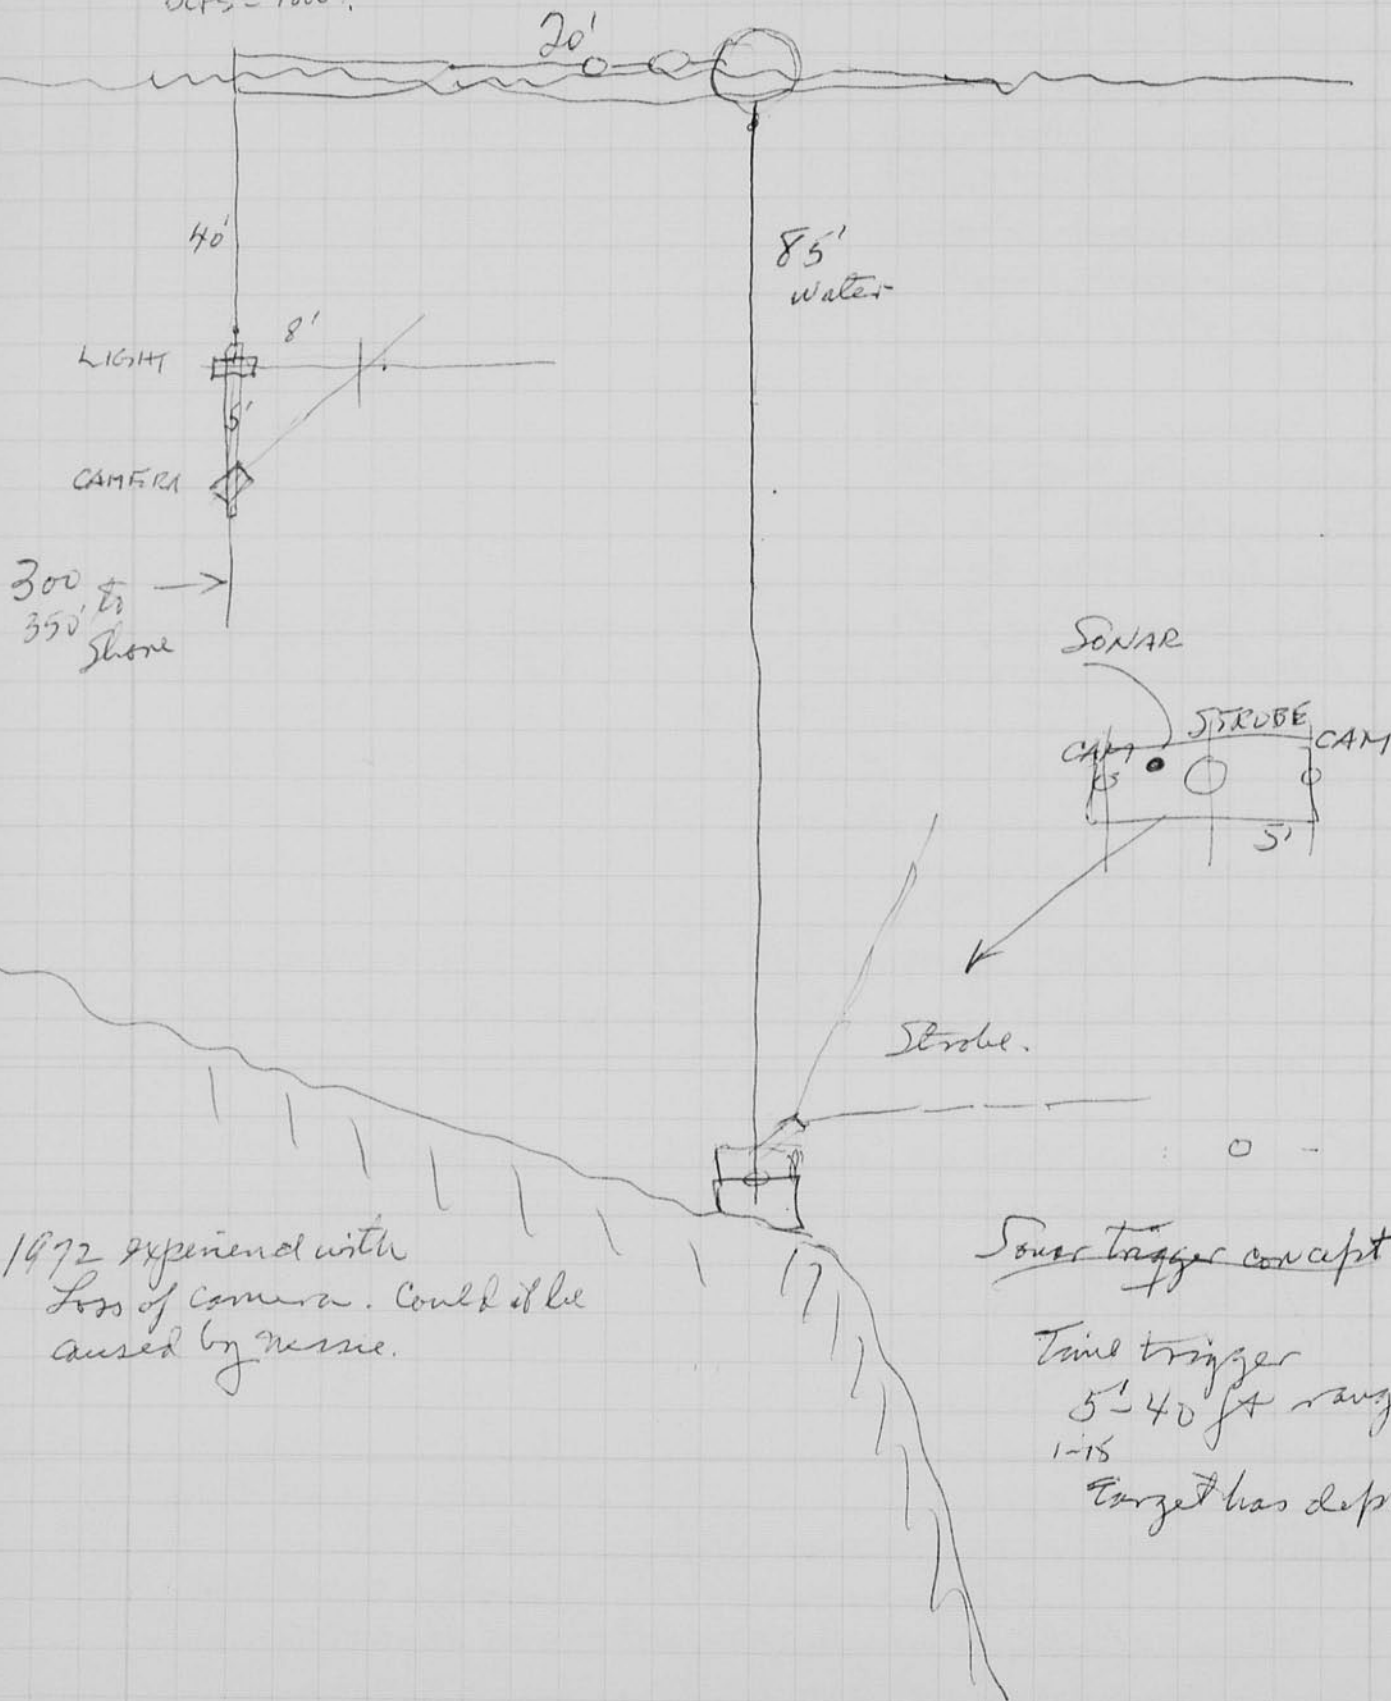 20'
40'
85'
water
8'
LIGHT
5'
CAMERA
300
350' to
Shore
SONAR
STROBE
CAM
CAM
5'
Strobe.
1972 experiend with
Loss of camera. Could it be
caused by nessie.
Sonar trigger concept
Time trigger
5'-40 ft rang
1-15
Target has dep